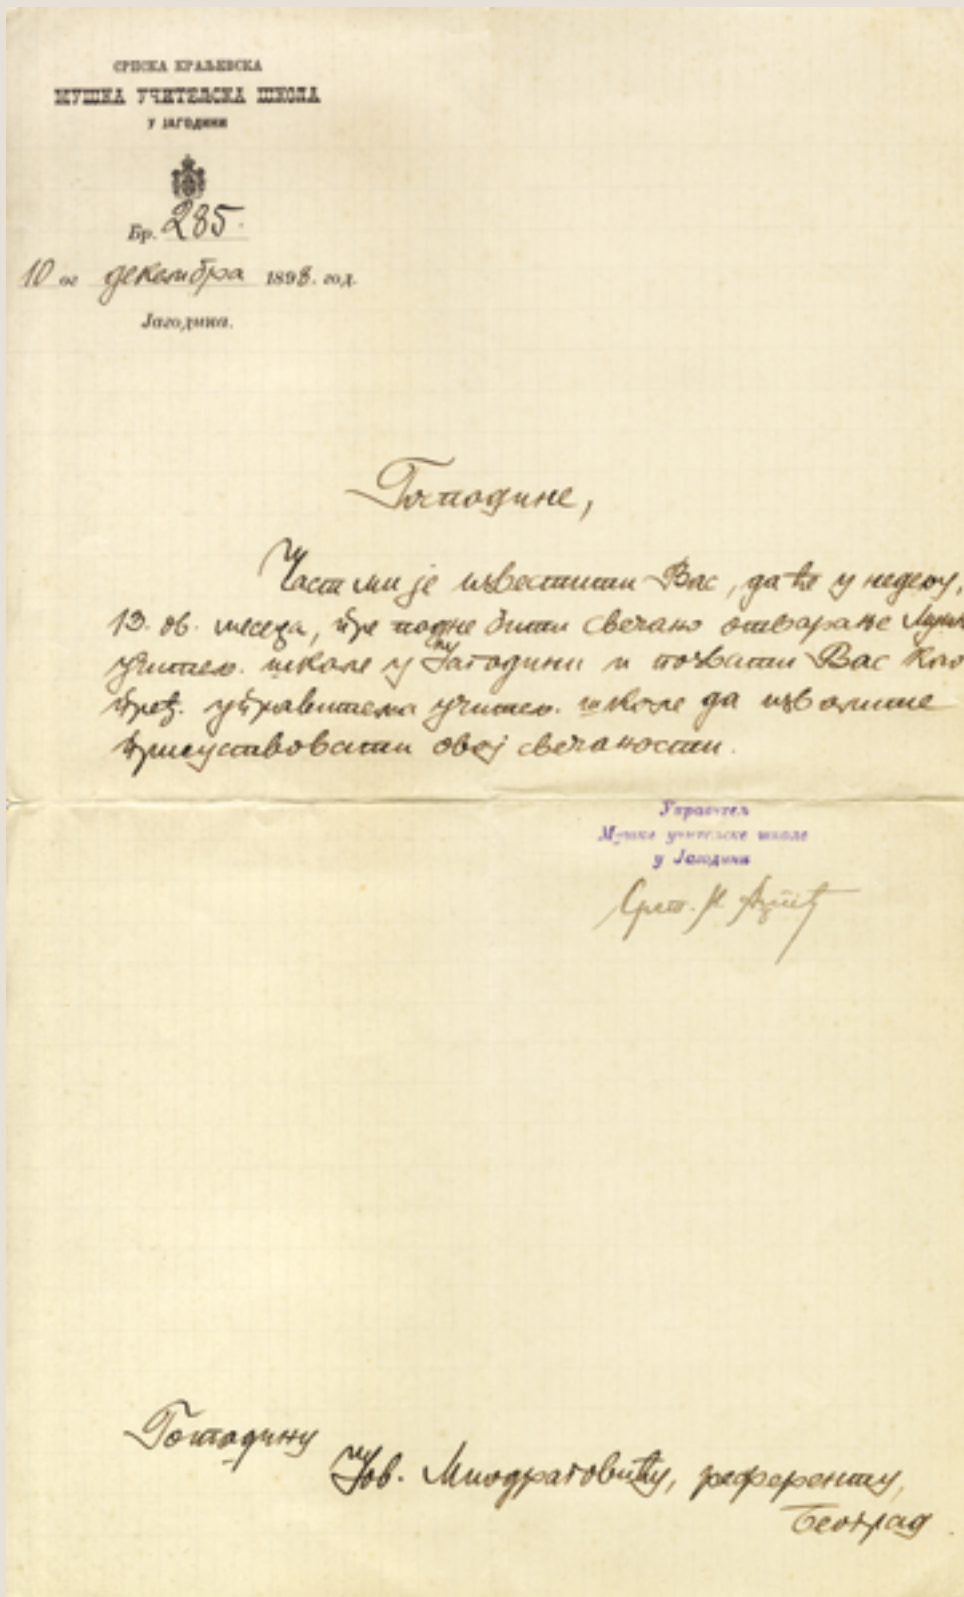 СРПСКА КРАЉЕВСКА
МУШКА УЧИТЕЉСКА ШКОЛА
У ЈАГОДИНИ
Бр. 285.
10 ог декембра 1898. год.
Јагодина.
Господине,
Част ми је известити Вас, да ће у недељу,
13. ов. месеца, пре подне бити свечано отварање Мушке
учитељ. школе у Јагодини и позвати Вас као
пређ. управитеља учитељ. школе да изволите
присуствовати овој свечаности.
Управитељ
Мушке учитељске школе
у Јагодини
Срет.
Господину
Јов. Миодраговићу, референту,
Београд.